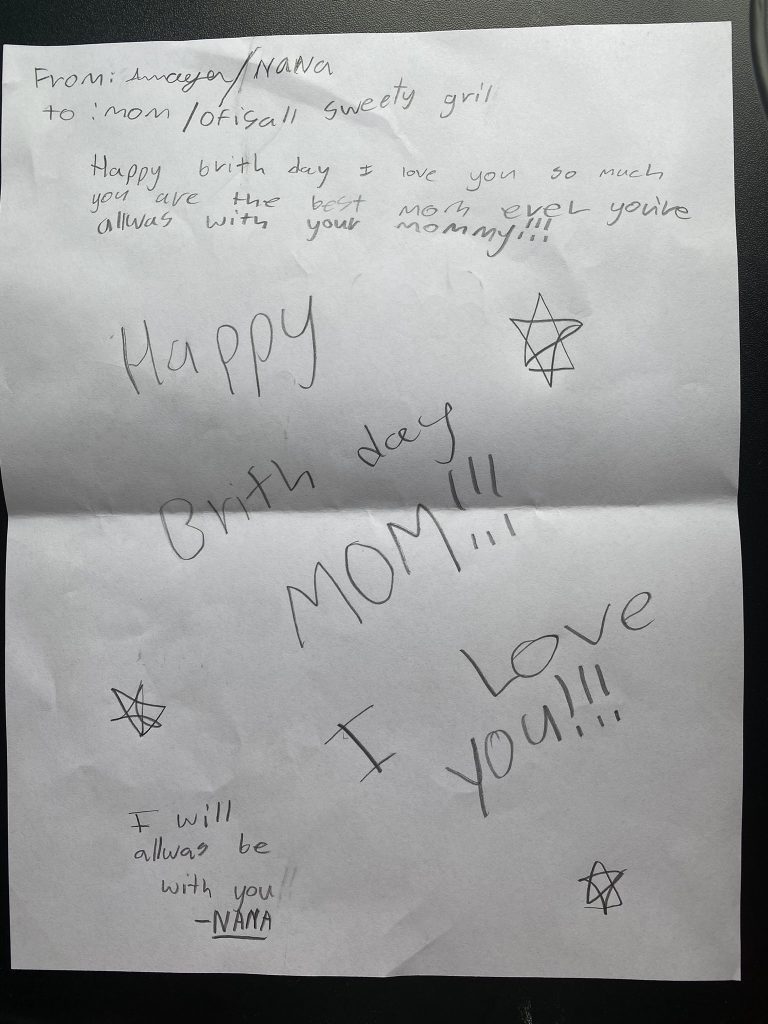 From: Amaya/NANA
to : mom /Ofisall sweety gril
Happy brith day I love you so much
you are the best mom ever you're
allwas with your mommy!!!
Happy
Brith day
MOM!!!
I Love
you!!!
I will
allwas be
with you!!
-NANA